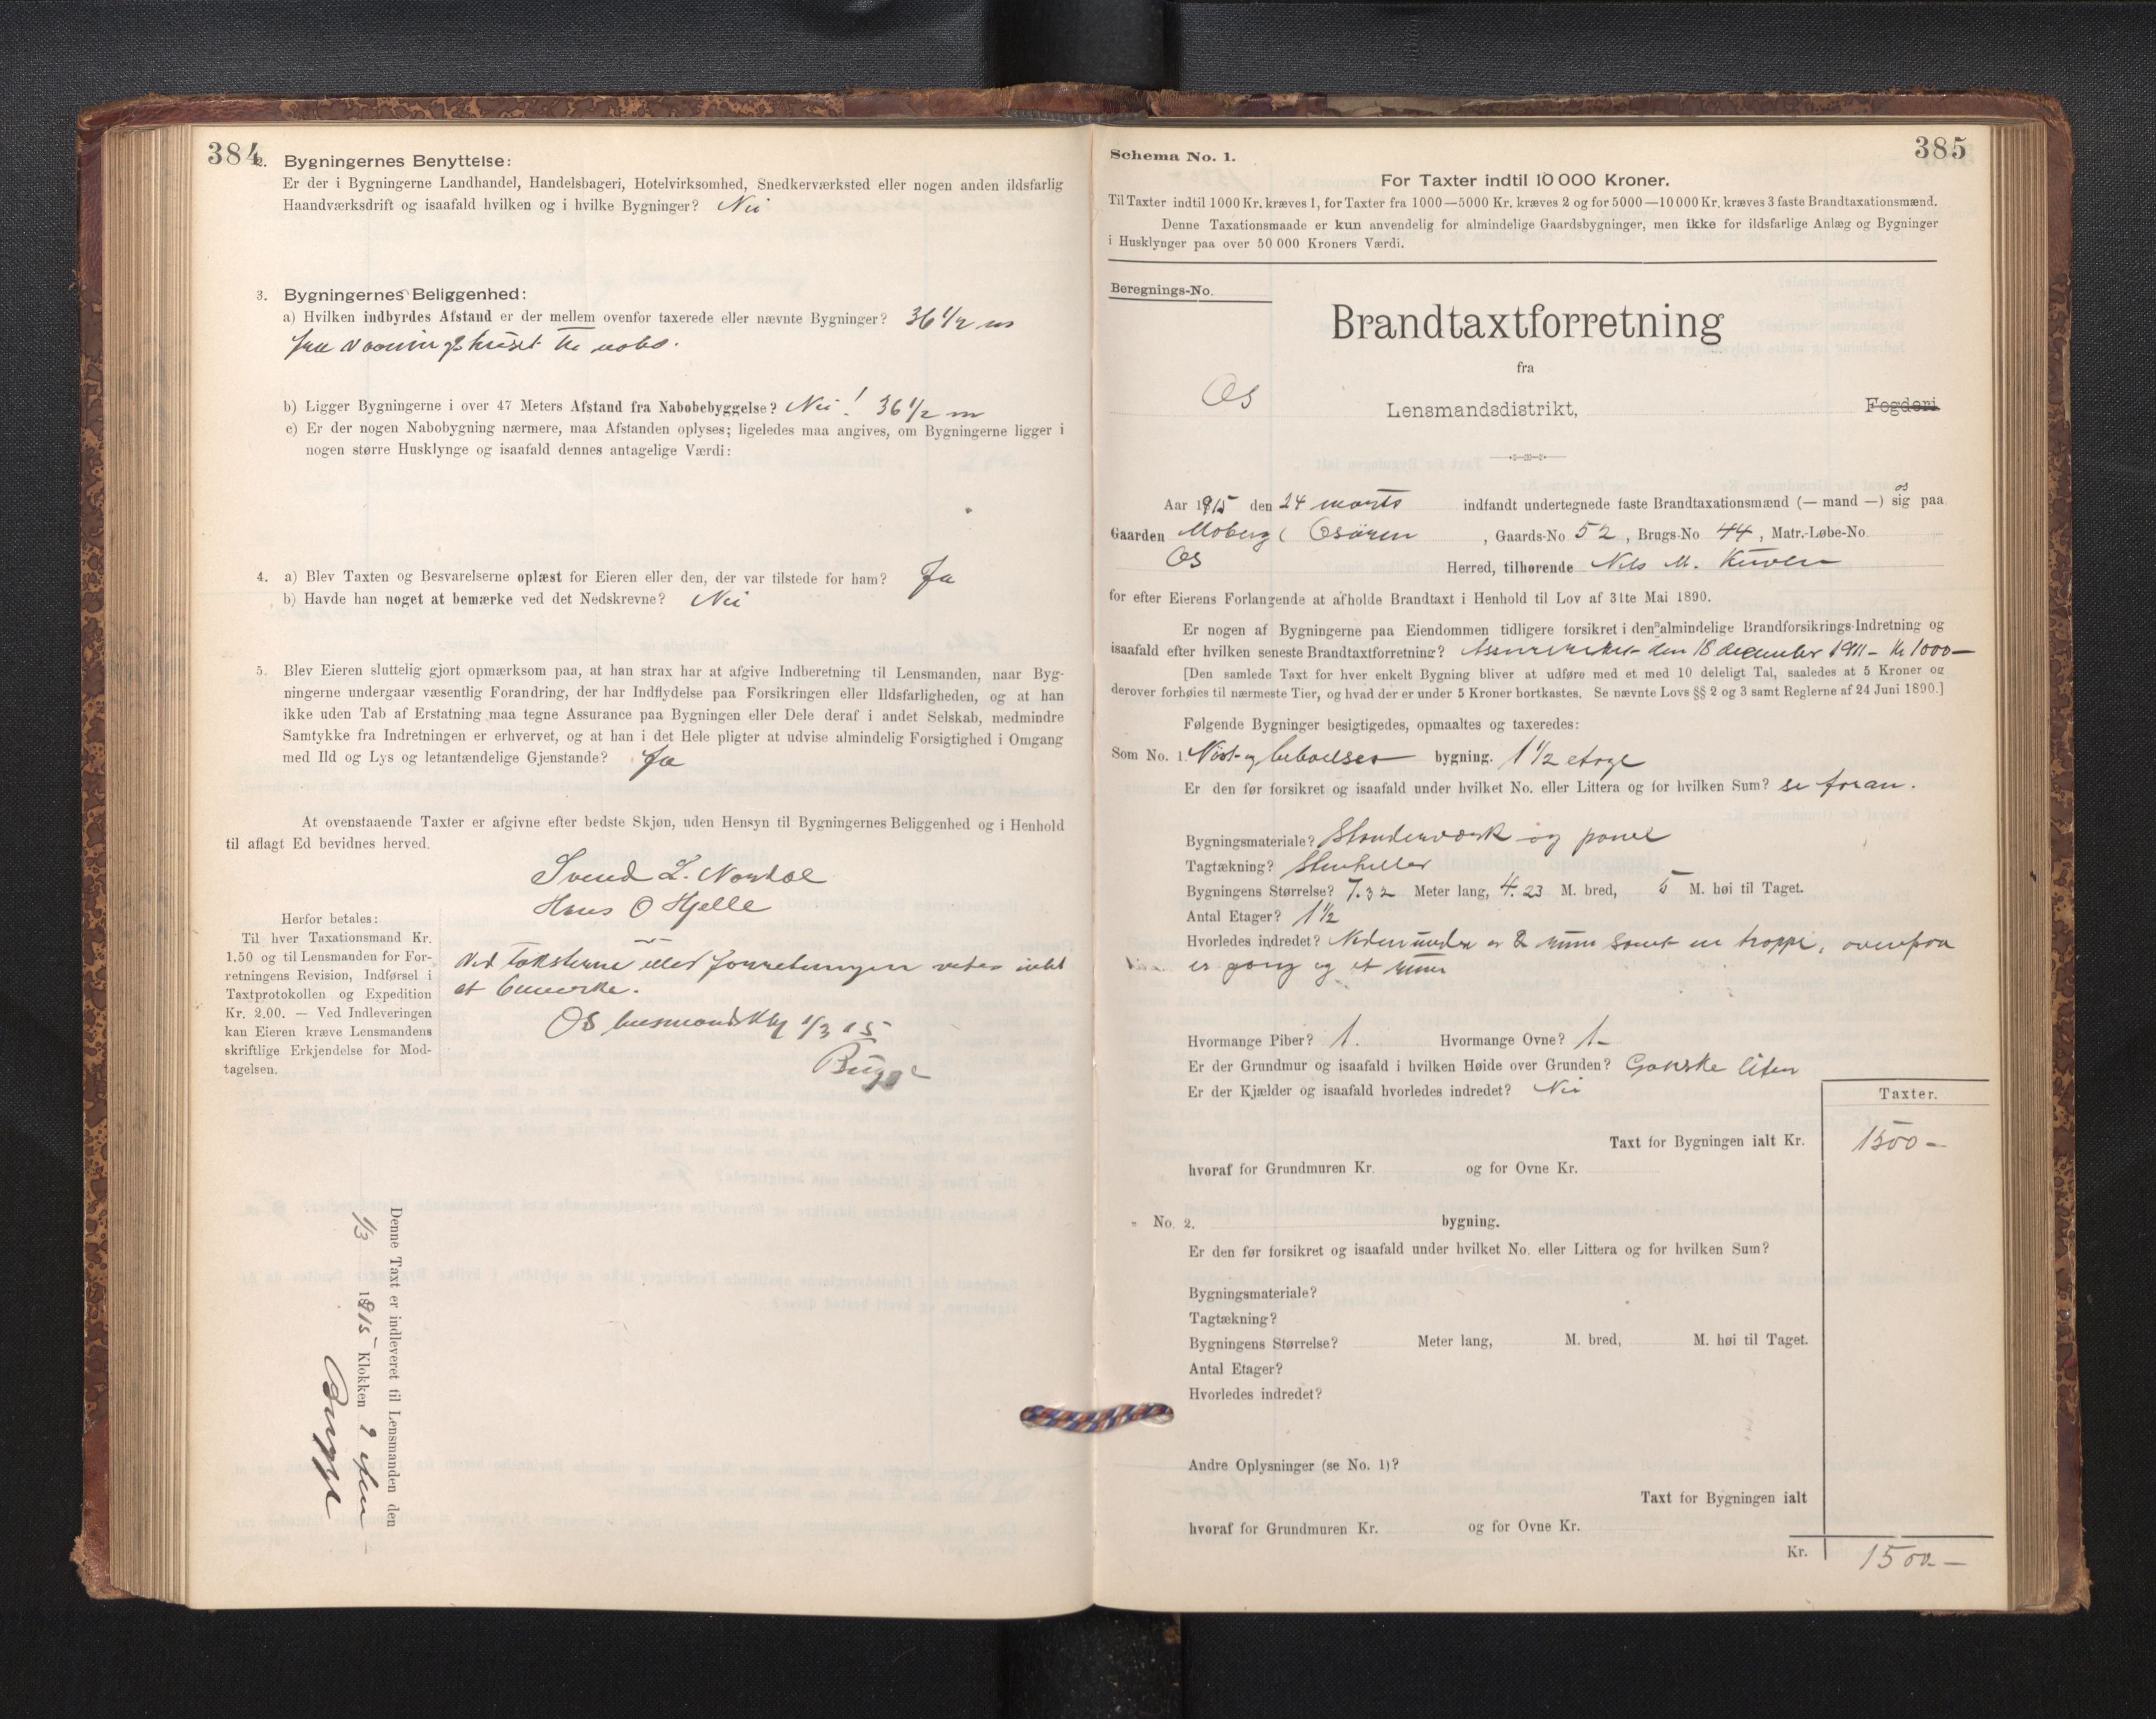 384
2. Bygningernes Benyttelse:
Er der i Bygningerne Landhandel, Handelsbageri, Hotelvirksomhed, Snedkerværksted eller nogen anden ildsfarlig
Haandværksdrift og isaafald hvilken og i hvilke Bygninger? Nei
3. Bygningernes Beliggenhed:
a) Hvilken indbyrdes Afstand er der mellem ovenfor taxerede eller nævnte Bygninger? 36 1/2 m
fra vaaningshuset til nabo.
b) Ligger Bygningerne i over 47 Meters Afstand fra Nabobebyggelse? Nei! 36 1/2 m
c) Er der nogen Nabobygning nærmere, maa Afstanden oplyses; ligeledes maa angives, om Bygningerne ligger i
nogen større Husklynge og isaafald dennes antagelige Værdi:
4. a) Blev Taxten og Besvarelserne oplæst for Eieren eller den, der var tilstede for ham? Ja
b) Havde han noget at bemærke ved det Nedskrevne? Nei
5. Blev Eieren sluttelig gjort opmærksom paa, at han strax har at afgive Indberetning til Lensmanden, naar Byg-
ningerne undergaar væsentlig Forandring, der har Indflydelse paa Forsikringen eller Ildsfarligheden, og at han
ikke uden Tab af Erstatning maa tegne Assurance paa Bygningen eller Dele deraf i andet Selskab, medmindre
Samtykke fra Indretningen er erhvervet, og at han i det Hele pligter at udvise almindelig Forsigtighed i Omgang
med Ild og Lys og letantændelige Gjenstande? Ja
At ovenstaaende Taxter er afgivne efter bedste Skjøn, uden Hensyn til Bygningernes Beliggenhed og i Henhold
til aflagt Ed bevidnes herved.
Svend L. Nordal
Hans O Hjelle
Herfor betales:
Til hver Taxationsmand Kr.
1.50 og til Lensmanden for For-
retningens Revision, Indførsel i
Taxtprotokollen og Expedition
Kr. 2.00. — Ved Indleveringen
kan Eieren kræve Lensmandens
skriftlige Erkjendelse for Mod-
tagelsen.
Ved taksterne eller forretningen vides intet
at bemerke.
Os 1/3 15
Bugge
Denne Taxt er indleveret til Lensmanden den
1/3 1915 Klokken
Bugge
385
Schema No. 1.
For Taxter indtil 10 000 Kroner.
Til Taxter indtil 1000 Kr. kræves 1, for Taxter fra 1000—5000 Kr. kræves 2 og for 5000—10 000 Kr. kræves 3 faste Brandtaxationsmænd.
Denne Taxationsmaade er kun anvendelig for almindelige Gaardsbygninger, men ikke for ildsfarlige Anlæg og Bygninger
i Husklynger paa over 50 000 Kroners Værdi.
Beregnings-No.
Brandtaxtforretning
fra
Os Lensmandsdistrikt, Fogderi
Aar 1915 den 24 marts indfandt undertegnede faste Brandtaxationsmænd (— mand —) sig os paa
Gaarden Moberg ( Osøren , Gaards-No 52 , Brugs-No 44 , Matr.-Løbe-No.
Os Herred, tilhørende Nils M.
for efter Eierens Forlangende at afholde Brandtaxt i Henhold til Lov af 31te Mai 1890.
Er nogen af Bygningerne paa Eiendommen tidligere forsikret i den almindelige Brandforsikrings-Indretning og
isaafald efter hvilken seneste Brandtaxtforretning? den 18 december 1911 - Kr 1000 —
[Den samlede Taxt for hver enkelt Bygning bliver at udføre med et med 10 deleligt Tal, saaledes at 5 Kroner og
derover forhøies til nærmeste Tier, og hvad der er under 5 Kroner bortkastes. Se nævnte Lovs §§ 2 og 3 samt Reglerne af 24 Juni 1890.]
Følgende Bygninger besigtigedes, opmaaltes og taxeredes:
Som No. 1. Nøst- og beboelses bygning. 1 1/2 etage
Er den før forsikret og isaafald under hvilket No. eller Littera og for hvilken Sum? se foran.
Bygningsmateriale? Standerværk og panel
Tagtækning? Stenheller
Bygningens Størrelse? 7.32 Meter lang, 4.23 M. bred, 5 M. høi til Taget.
Antal Etager? 1 1/2
Hvorledes indredet? Nedenunder er 2 rum samt en trappe, ovenpaa
er gang og et rum
Hvormange Piber? 1. Hvormange Ovne? 1-
Er der Grundmur og isaafald i hvilken Høide over Grunden? Ganske liten
Er der Kjælder og isaafald hvorledes indredet? Nei
Taxter.
Taxt for Bygningen ialt Kr. 1500 -
hvoraf for Grundmuren Kr. og for Ovne Kr.
No. 2. bygning.
Er den før forsikret og isaafald under hvilket No. eller Littera og for hvilken Sum?
Bygningsmateriale?
Tagtækning?
Bygningens Størrelse? Meter lang, M. bred, M. høi til Taget.
Antal Etager?
Hvorledes indredet?
Andre Oplysninger (se No. 1)?
Taxt for Bygningen ialt
hvoraf for Grundmuren Kr. og for Ovne Kr.
Kr. 1500 —